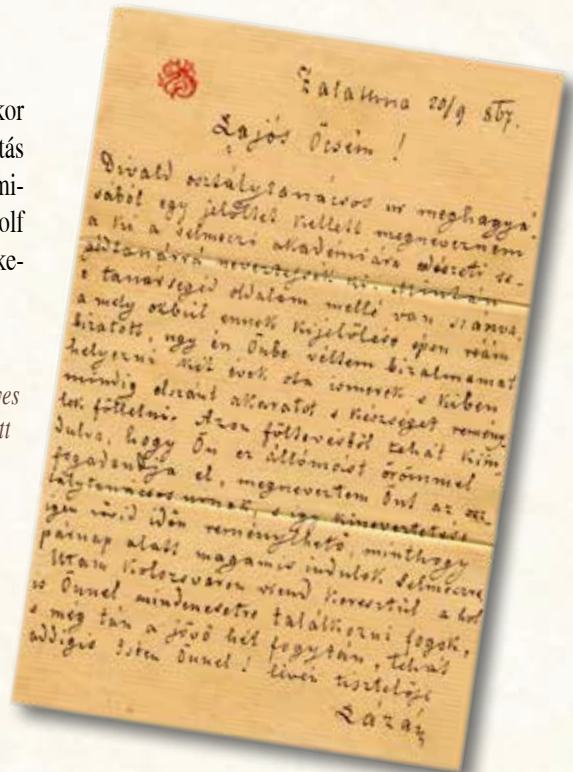 kor
tás
mi-
olf
ke-
ves
tt
Zalathna 20/9 867.
Lajos Öcsém !
Divald osztálytanácsos ur meghagyá-
sából egy jelöltet kellett megneveznem
a ki a selmeczi akadémiára erdészeti se-
gédtanárrá neveztessék ki. Miután
e tanársegéd oldalam mellé van szánva,
a mely okbúl ennek kijelölése épen reám
bizatott, ugy én Önbe véltem bizalmamat
helyezni kit evek óta ismerek s kiben
mindig elszánt akaratot s készséget remény-
lek föllelni. Azon föltevésből tehát kiin-
dulva, hogy Ön ez állomást örömmel
fogadandja el, megneveztem Önt az osz-
tálytanácsos urnak, s igy kineveztetése
igen rövid időn reményllhető, minthogy
párnap alatt magamis indulok Selmeczre
Utam Kolozsváron viend keresztül a hol
is Önnel mindenesetre találkozni fogok,
s még tán a jövő hét fogytán, tehát
addigis Isten Önnel ! lévén tisztelője
Lázár